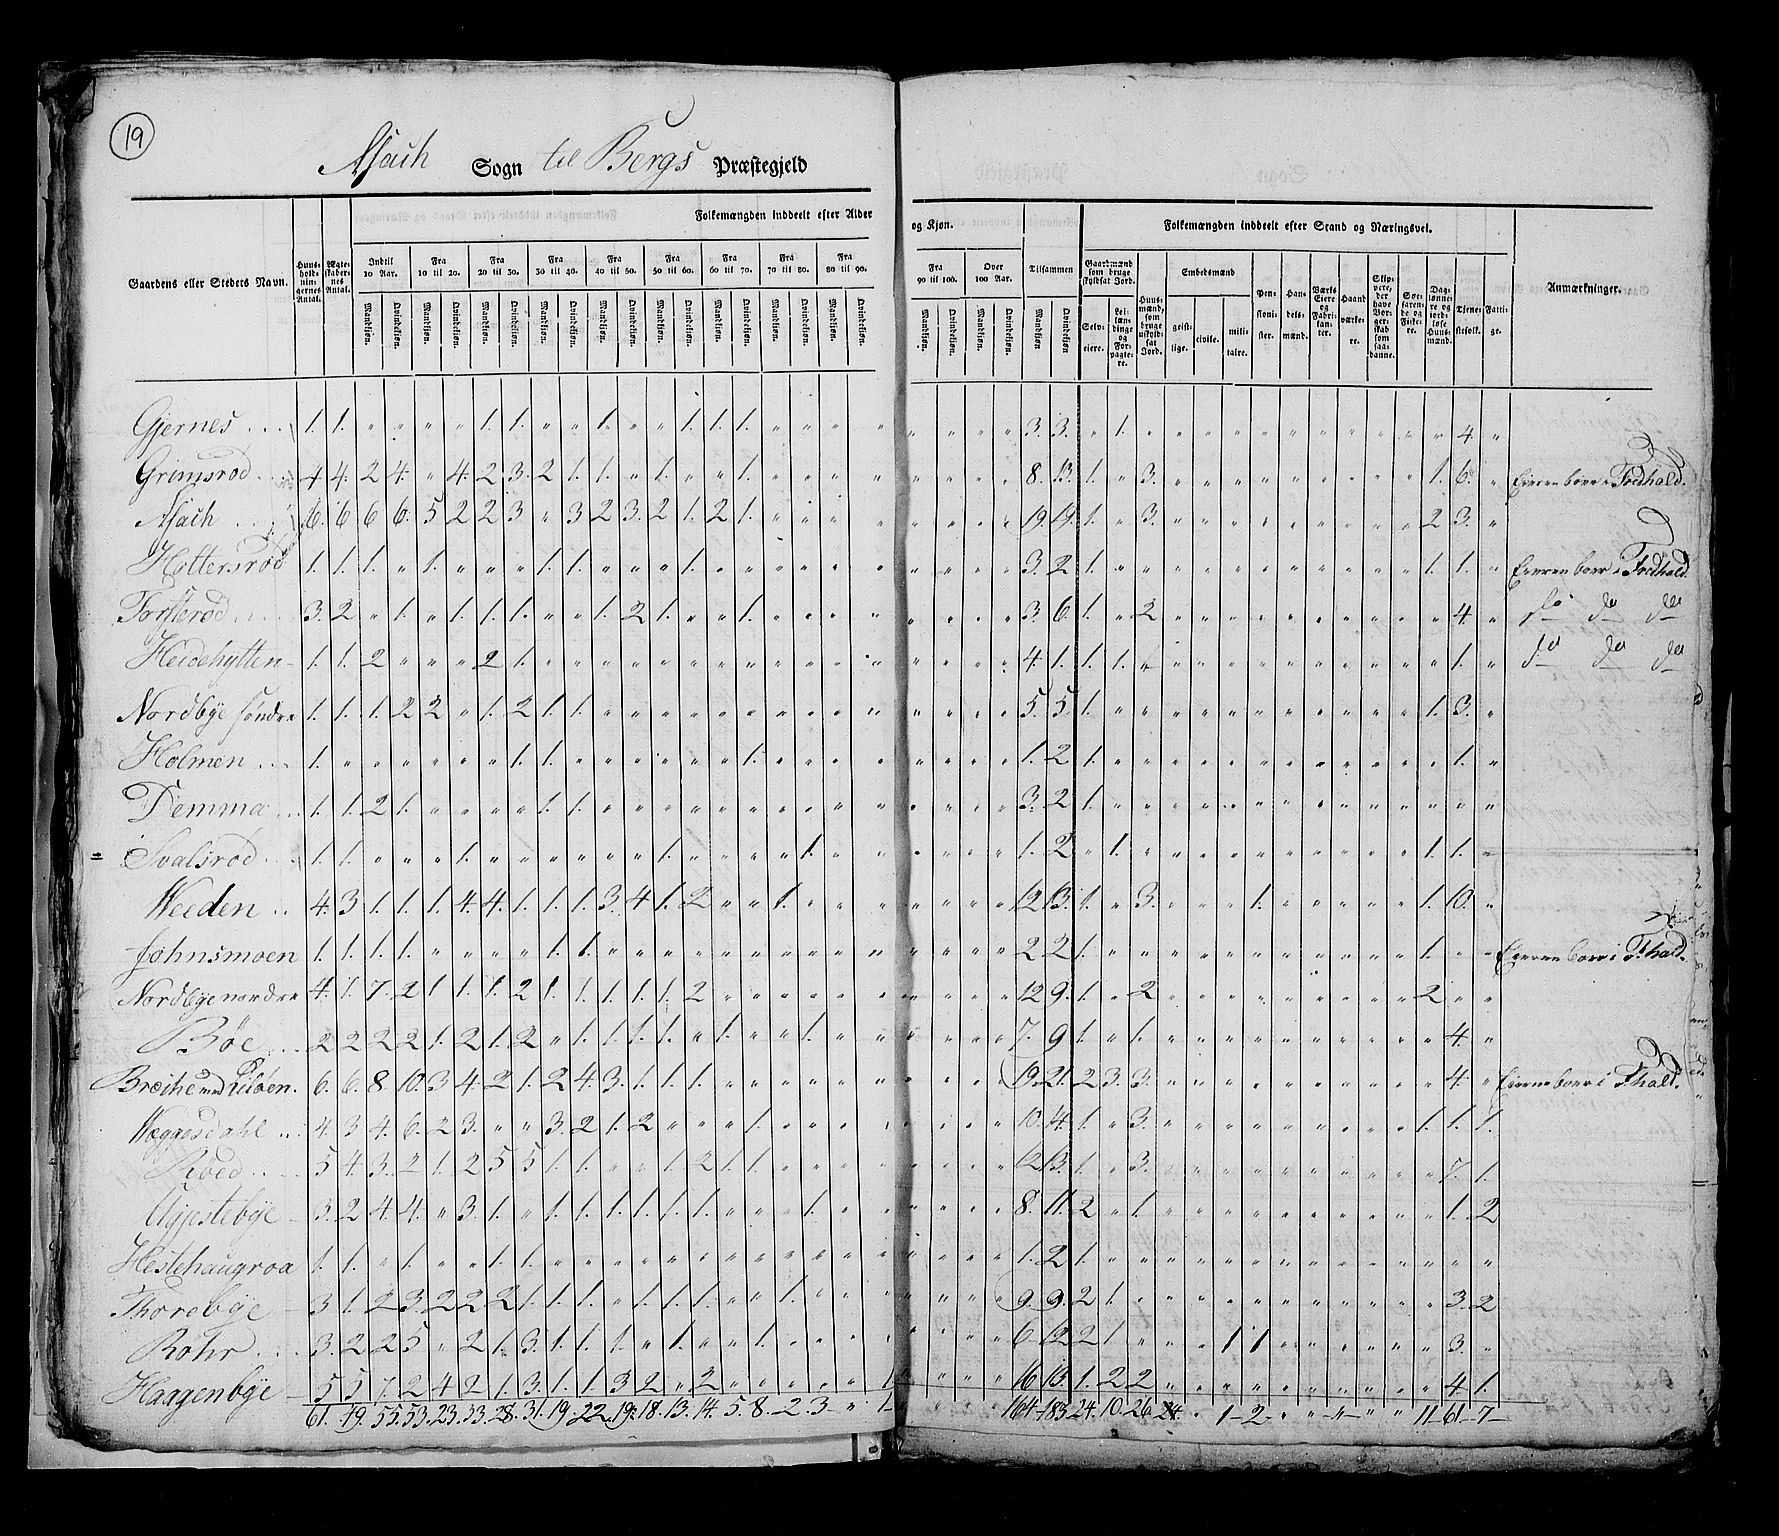 19
Asach Sogn til Bergs Præstegjeld
Folkemængden inddeelt efter Alder og Kjøn.
Folkemængden inddeelt efter Stand og Næringsvei.
Gaardens eller Stedets Navn.
Huusholdningernes Antal.
Ægteskabernes Antal.
Indtil 10 Aar.
Fra 10 til 20.
Fra 20 til 30.
Fra 30 til 40.
Fra 40 til 50.
Fra 50 til 60.
Fra 60 til 70.
Fra 70 til 80.
Fra 80 til 90.
Fra 90 til 100.
Over 100 Aar.
Tilsammen
Mandkjøn. Qvindekjøn.
Gaardmænd som bruge skyldsat Jord.
Selveiere.
Leilændinge og Forpagtere.
Huusmænd, som bruge uskyldsat Jord.
Embedsmænd
geistlige.
civile.
militaire.
Pensionister.
Handelsmænd.
Værkseiere og Fabrikanter.
Haandværkere.
Skippere, der have Borgerskab som saadanne.
Søefarende og Fiskere.
Dagslønnere og jordløse Huusmænd.
Tjenestefolk.
Fattige.
Anmærkninger.
Gjernes 1. 1. " " " " 1. 1. " " 1. " " 1. 1. 1. " " " " " " " " 3. 3. " 1. " " " " " " " " " " " 4. "
Grimsrød 4. 4. 2 4. " 4. 2 3. 2 1. 1. " 1. " " 1. " " " " " " " " 8. 13. 1. " 3. " " " " " " " " " 1. 6. " Eieren boer i Fredhald.
Asach 6. 6 6 6. 5 2 2 3 " 3 2 3. 2 1. 2 1. " " " " " " " " 19. 19. 1. " 3. " " " " " " " " " 2 3. "
Hattersrød 1. 1. 1. " 1. " " " 1. 1. " " " 1. " " " " " " " " " " 3. 2 1. " " " " " " " " " " " 1. 1. " Eieren boer i Fredhald.
Torpterød 3. 2 " 1. " 1. 1. 1. " " 1. 2 1. " " 1. " " " " " " " " 3. 6. 1. " 2 " " " " " " " " " " 4. " do do do
Heidehytten 1. 1. 2 " " " 2 1. " " " " " " " " " " " " " " " " 4. 1. 1. 1. " " " " " " " " " " " 1. " do do do
Nordbye søndre 1. 1. 1. 2 2 " 1. 2 1. 1. " " " " " " " " " " " " " " 5. 5 1. " " " " " " " " " " " 1. 3. "
Holmen 1. " " " " " " 1. 1. " " " " " " 1. " " " " " " " " 1. 2 1. " " " " " " " " " " " " 1. "
Demma 1. 1. 2 1. " " " " 1. 1. " " " " " " " " " " " " " " 3. 2 1. " " " " " " " " " " " " " "
Svalsrød 1. 1. " " " 1. " " " " " " 1. " " " " 1. " " " " " " 1. 2 " 1. " " " " " " " " " " 1. 1. "
Weeden 4. 3. 1. 1. 1. 4. 4. 1. 1. 1. 3. 4. 1. 2 " " 1. " " " " " " " 12 13. 1. " 3. " " " 1. " " " " " 1. 10. "
Johnsmoen 1. 1. 1. 1. " " " " 1. 1. " " " " " " " " " " " " " " 2 2 1. " " " " " " " " " " " 1. " " Eieren boer i F.hald.
Nordbye nordre 4. 1. 7. 2 1. 1. 1. 2 1. 1. 1. 1. 1. 2 " " " " " " " " " " 12 9. 1. " 2 " " " " " " " " " 2 " "
Bøe 2 2 2 2 1. 2 1. 2 " 1. 1. 1. 1. " 1. " " 1. " " " " " " 7. 9 1. " 1. " " " " " " " " " " 4. "
Bræche med Ulsøen. 6. 6. 8 10. 3 4. 2 1. 2 4. 3. 1. 1. 1. " " " " " " " " " " 19. 21. 2 3. 3. " " " " " " " " " " 4. " Eieren boer i F.hald.
Wæggesdahl 4. 3 4. 6. 2 3. " " 3. 2 1. 2 " " " 1. " " " " " " " " 10. 14. 1. " 3. " " " " " " " " " 1. 1. 1.
Roed 5 4. 3. 2 1. 2 5 5 1. 1. " " 1. 2 1. 1. " " " " " " " " 12 13. 1. " 3. " " " " " " " " " " 7. 1.
Ugjestebye 3. 2 4. 4. " 3. 1. " 1. 1. 1. 1. 1. 1. " " " 1. " " " " " " 8. 11. 2 " 1. " " " " " " " " " " 1. 2
Hestehaugroa 1. 1. " 1. " " 1. 1. " " " " " " " " " " " " " " " " 1. 2 1. " " " " " " " " " " " " " "
Thorebye 3. 1. 2 3. 2 2 2 1. 1. 1. " 1. 1. 1. " " 1. " " " " " " " 9. 9. 2 1. " " " " " " " " " " " 3. 2
Rohr 3. 2 2 5 " 2 1. 3. 1. 1. 1. " 1. " " 1. " " " " " " " " 6 12 2 1. " " " 1 1. " " " " " " 3. "
Haagenbye 5 5 7. 2 4 2 1. 3. 1. 1. 3 2 " 2 " " " " " 1. " " " " 16 13. 1. 2 2 " " " " " " " " " " 4 1.
61. 49. 55. 53. 23. 33. 28. 31. 19. 22. 19. 18. 13. 14. 5. 8. 2. 3 " 1 164 183 24. 10. 26 " " 1 2 " " " " " 11 61 7